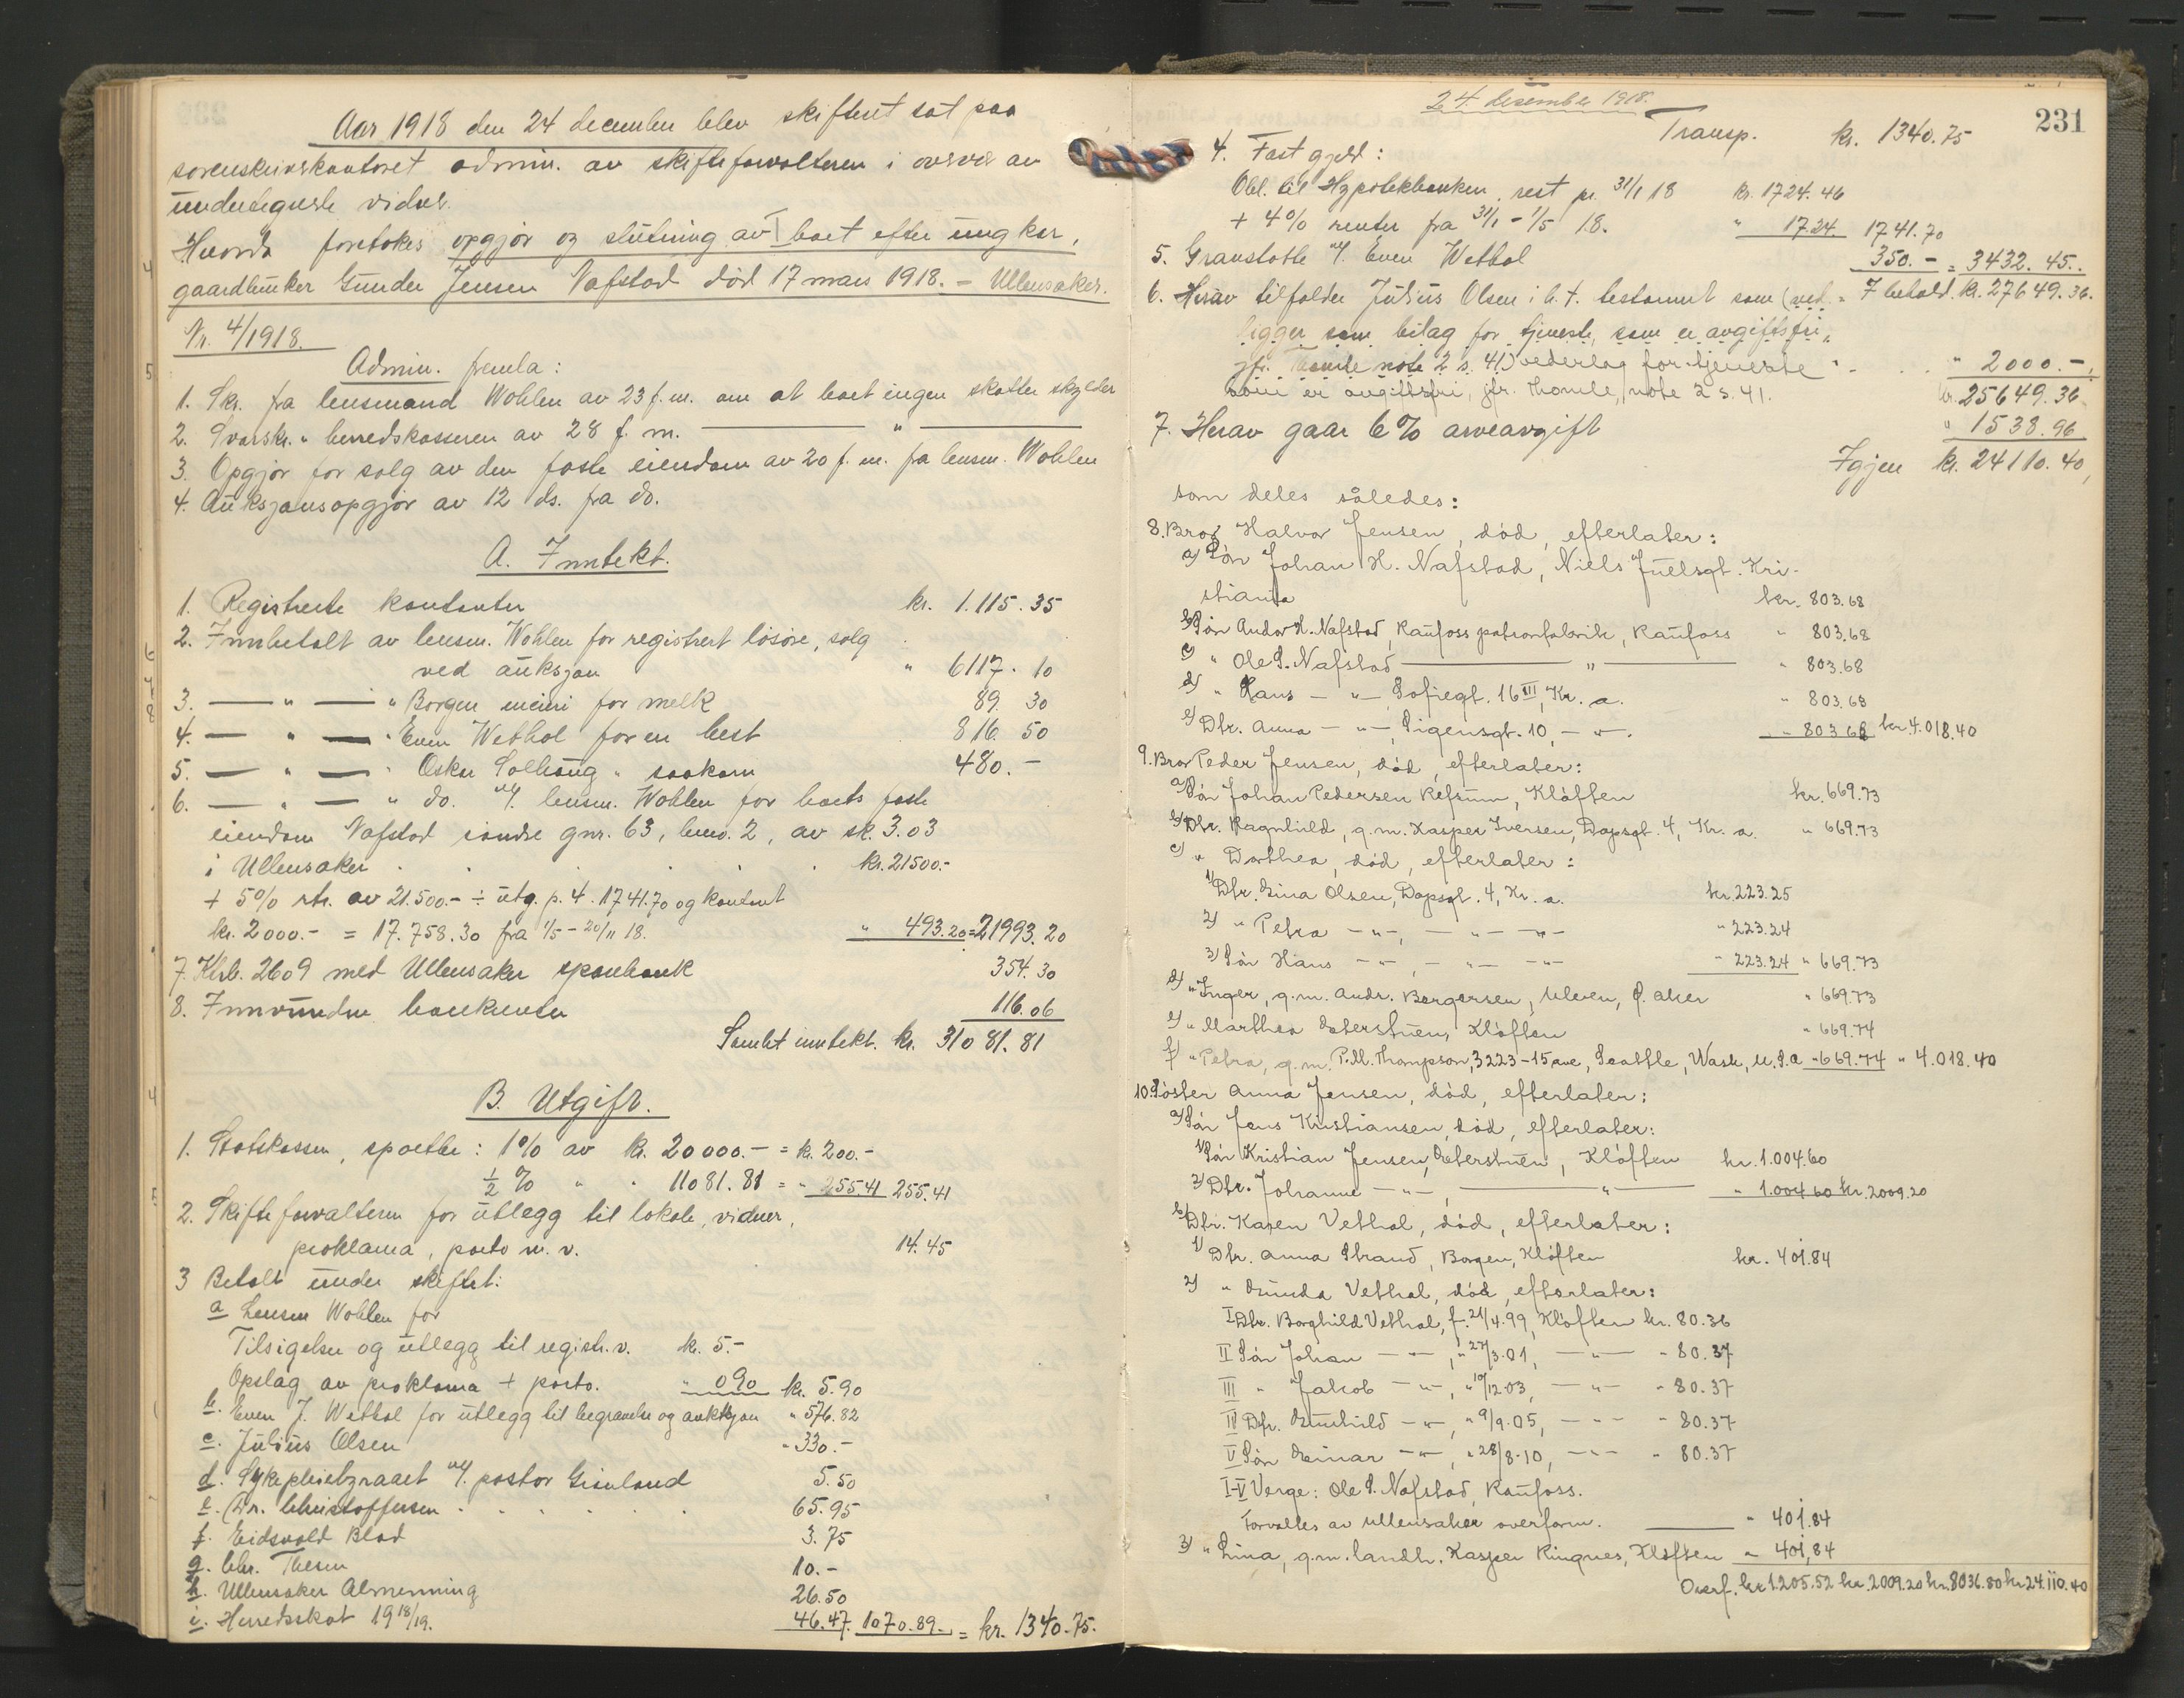 Aar 1918 den 24 december blev skifteret sat paa
sorenskriverkontoret admin. av skifteforvalteren i overvær av
undertegnede vidner.
Hvorda foretokes opgjør og slutning av boet efter ungkar,
gaardbruker Gunder Jensen Nafstad død 17 mars 1918. – Ullensaker.
Nr. 4/1918.
Admin. fremla:
1. Skr. fra lensmand Wohlen av 23 f. m. om at boet ingen skatter skylder
2. Svarskr. " herredskasseren av 28 f. m. — " —
3. Opgjør for salg av den faste eiendom av 20 f. m. fra lensm. Wohlen
4. Auksjonsopgjør av 12 ds. fra do.
A. Inntekt.
1. Registrerte kontanter kr. 1.115.35
2. Innbetalt av lensm. Wohlen for registrert løsøre, solg
ved auksjon " 6117.10
3. — " — " Borgen meieri for melk 89.30
4. — " — " Even Wethal for en hest 816.50
5. — " — " Oskar Solhaug " saakorn 480.–
6. — " — " do. v/ lensm. Wohlen for boets faste
eiendom Nafstad søndre gnr. 63, brno. 2, av sk. 3.03
i Ullensaker kr. 21500.–
+ 5% rtr. av 21.500.– ÷ utg. p. 4. 1741.70 og kontant
kr. 2000.– = 17.758.30 fra 1/5 – 20/11 18. " 493.20 = 21993.20
7. Ktrb. 2609 med Ullensaker sparebank 354.30
8. Innvundne bankrenter 116.06
Samlet inntekt. kr. 31081.81
B. Utgift.
1. Statskassen, sportler: 1% av kr. 20000.– = kr. 200.–
1/2 % " " 11081.81 = " 255.41 255.41
2. Skifteforvalteren for utlegg til lokale, vidner,
proklama, porto m. v. 14.45
3 Betalt under skiftet:
a Lensm Wohlen for
Tilsigelser og utlegg til registr.v. kr. 5.–
Opslag av proklama + porto. " 0.90 kr. 5.90
b. Even J. Wethal for utlegg til begravelse og auksjon " 576.82
c. Julius Olsen " 330.–
d. Sykepleiebznaaet v/ pastor Grønland 5.50
e. Dr. Christoffersen 65.95
f. Eidsvold Blad 3.75
g. Chr. Thesen 10.–
h. Ullensaker Almenning 26.50
i. Herredsskat 1918/19. 46.47. 1070.89. = kr. 1340.75.
24. desember 1918.
231
Transp. kr. 1340.75
4. Fast gjeld:
Obl. til Hypotekbanken, rest pr. 31/1 18 kr. 1724.46
+ 4% renter fra 31/1 – 1/5 18. " 17.24. 1741.70
5. Gravstøtte v/ Even Wethal 350.– = 3432.45.
6. Herav tilfalder Julius Olsen i h. t. testament som (ved- = I behold. kr. 27649.36.
ligger som bilag for tjeneste, som er avgiftsfri,
jfr. Thomle note 2 s. 41) vederlag for tjeneste " 2000.–
som er avgiftsfri, jfr. Thomle, note 2 s. 41. kr. 25649.36
7. Herav gaar 6% arveavgift " 1538.96
Igjen kr. 24110.40,
som deles således:
8. Bror Halvor Jensen, død, efterlater:
a) Søn Johan H. Nafstad, Niels Juelsgt. Kri-
stiania kr. 803.68
b) Søn Andor H. Nafstad, Raufoss patronfabrik, Raufoss " 803.68
c) " Ole S. Nafstad — " — " 803.68
d) " Hans — " — Sofiegt. 16 III, Kr. a. " 803.68
e) Dtr. Anna — " —, Eigensgt. 10, — " —. " 803.68 kr. 4.018.40
9. Bror Peder Jensen, død, efterlater:
a) Søn Johan Pedersen Refsum, Kløften kr. 669.73
b) Dtr. Ragnhild, g.m. Kasper Iversen, Dapsgt. 4, Kr. a. " 669.73
c) " Dorthea, død, efterlater:
1) Dtr. Gina Olsen, Dapsgt. 4, Kr. a. kr. 223.25
2) " Petra — " —, — " — " — " 223.24
3) Søn Hans — " —, — " — " — " 223.24 " 669.73
d) " Inger, g.m. Andr. Borgersen, Ulven, Ø. Aker " 669.73
e) " Marthea Sæterstuen, Kløften " 669.74
f) " Petra, g.m. P.M. Thompson, 3223 – 15 ave, Seattle, Wash, U.S.A " 669.74 " 4.018.40
10. Søster Anna Jensen, død, efterlater:
a) Søn Jens Kristiansen, død, efterlater:
1) Søn Kristian Jensen, Sæterstuen, Kløften kr. 1.004.60
2) Dtr. Johanne — " —, — " — " 1.004.60 kr. 2009.20
b) Dtr. Karen Vethal, død, efterlater:
1) Dtr. Anna Strand, Borgen, Kløften kr. 401.84
2) " Gunda Vethal, død, efterlater:
I Dtr. Borghild Vethal, f. 21/4.99, Kløften kr. 80.36
II Søn Johan — " —, " 27/3.01, — " — " 80.37
III " Jakob — " —, " 19/12.03, — " — " 80.37
IV Dtr. Gunhild — " —, " 9/9.05, — " — " 80.37
V Søn Einar — " —, " 28/8.10, — " — " 80.37
I-V Verge: Ole S. Nafstad, Raufoss.
Forvaltes av Ullensaker overform. — " 401.84
3) " Lina, g.m. landh. Kasper Ringnes, Kløften " 401,84
Overf. kr 1.205.52 kr. 2009.20 kr. 8036.80 kr. 24.110.40